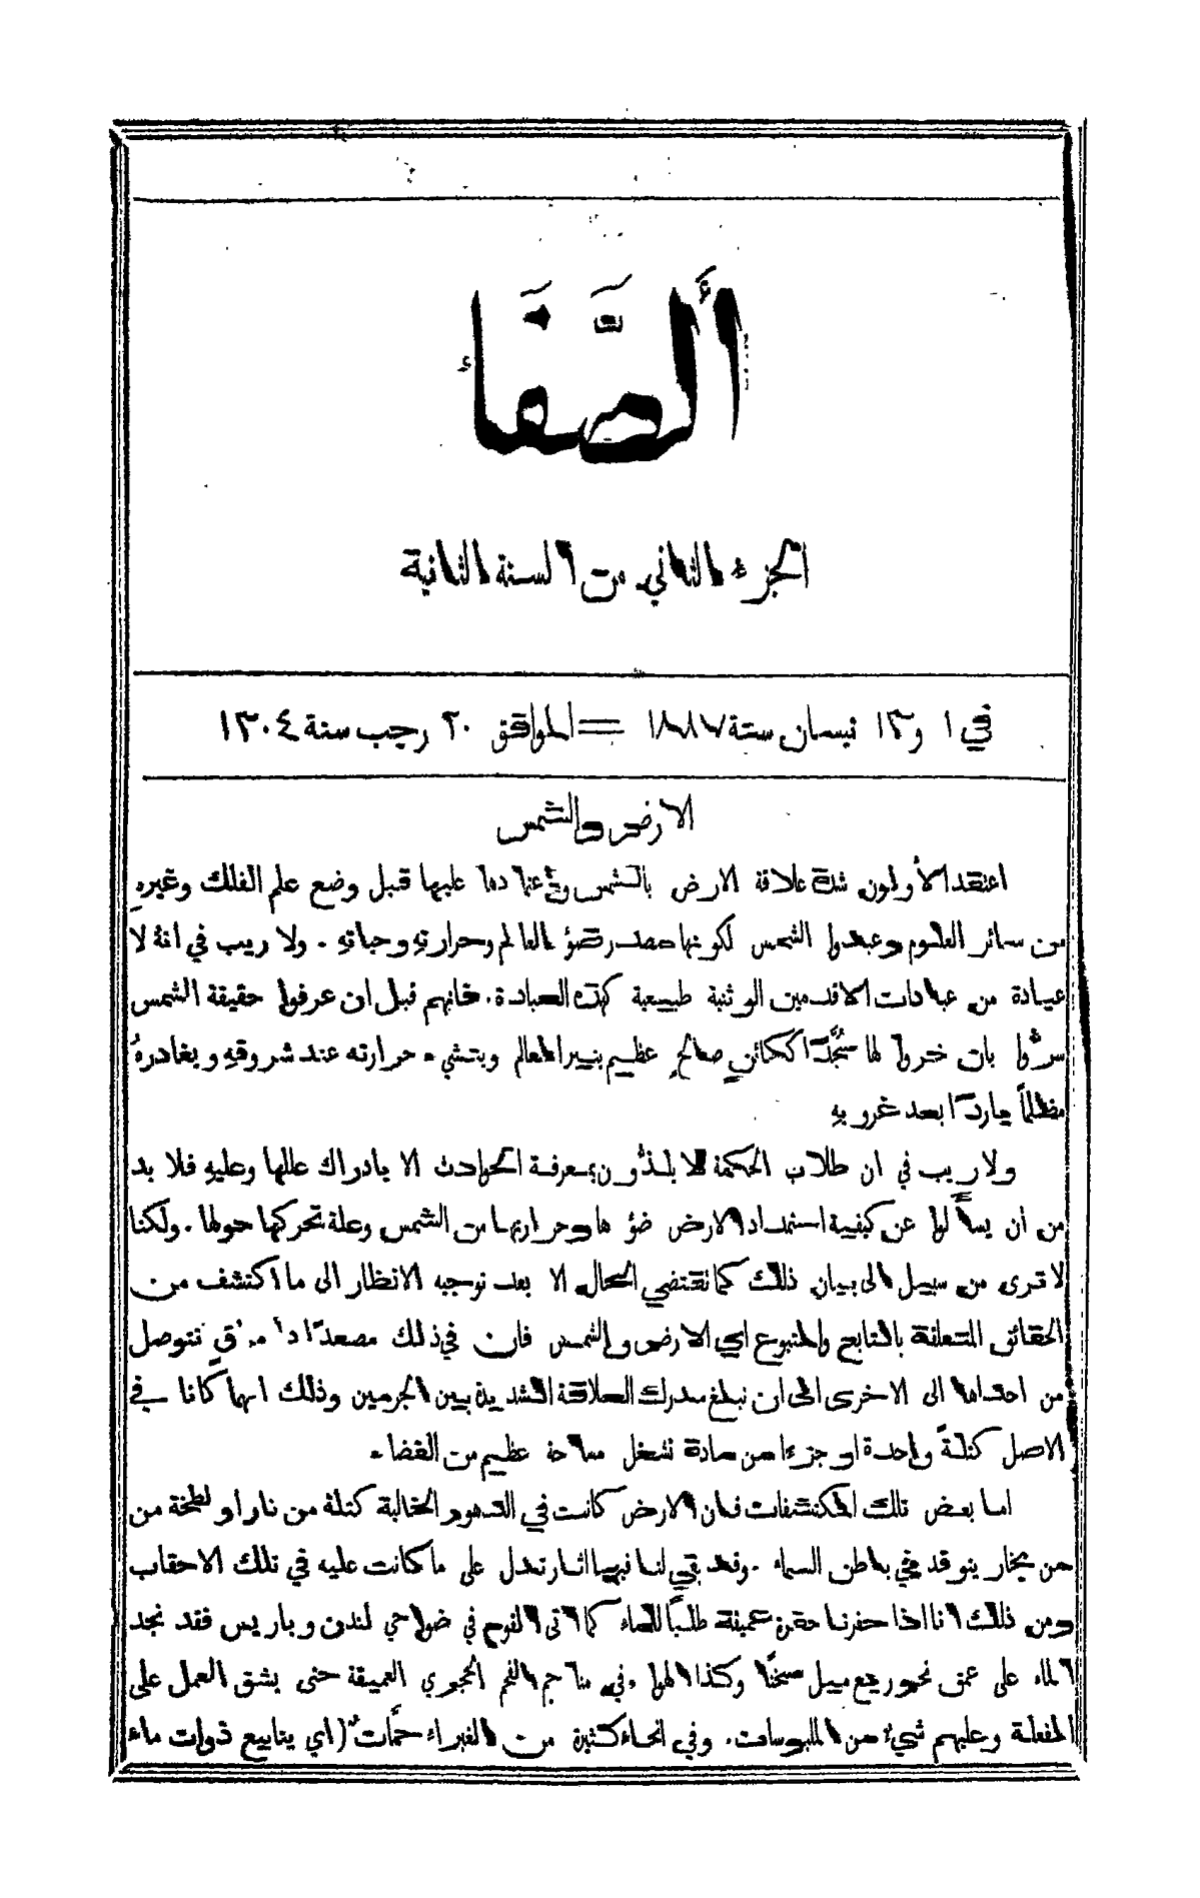 ألصَّفَاء
الجزء الثاني من السنة الثانية
في ١ و١٣ نيسان سنة ١٨٨٧ = الموافق ٢٠ رجب سنة ١٣٠٤
الارض والشمس
اعتقد الأولون شدة علاقة الارض بالشمس واعتمادها عليها قبل وضع علم الفلك وغيرهِ
من سائر العلوم وعبدوا الشمس لكونها مصدر ضؤ العالم وحرارتهِ وحياتهِ . ولا ريب في انهُ لا
عبادة من عبادات الاقدمين الوثنية طبيعية كهذه العبادة . فانهم قبل ان عرفوا حقيقة الشمس
سرُّوا بان خروا لها سُجَّدًا ككائنٍ صالحٍ عظيم ينير العالم وينشيء حرارته عند شروقهِ ويغادرهُ
مظلماً باردًا بعد غروبهِ
ولا ريب في ان طلاب الحكمة لا يلذُّون بمعرفة الحوادث الا بادراك عللها وعليهِ فلا بد
من ان يسألوا عن كيفية استمداد الارض ضؤها وحرارتها من الشمس وعلة تحركها حولها . ولكنا
لا نرى من سبيل الى بيان ذلك كما تقتضي الحال الا بعد توجيه الانظار الى ما اكتشف من
الحقائق المتعلقة بالتابع والمتبوع اي الارض والشمس فان في ذلك مصعدًا نتوصل
من احداها الى الاخرى الى ان نبلغ مدرك العلاقة الشديدة بين الجرمين وذلك انهما كانا في
الاصل كتلةً واحدة او جزءا من مادة تشغل مساحة عظيم من الفضاء
اما بعض تلك المكتشفات فان الارض كانت في الدهور الخالية كتلة من نار او لطخة من
من بخار يتوقد في باطن السماء . وقد بقي لنا فيها اثار تدل على ما كانت عليه في تلك الاحقاب
ومن ذلك انا اذا حفرنا حفرة عميقة طلباً للماء كما اتى القوم في ضواحي لندن وباريس فقد نجد
الماء على عمق نحو ربع ميل سخنًا وكذا الهواء وفي مناجم الفحم الحجري العميقة حتى يشق العمل على
الفعلة وعليهم شيء من الملبوسات . وفي انحاء كثيرة من الغبراء حمَّات (اي ينابيع ذوات ماء